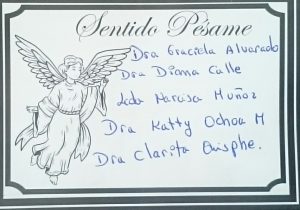 Sentido Pésame
Dra Graciela Alvarado
Dra Diana Calle
Lcda Narcisa Muñoz
Dra Katty Ochoa M
Dra Clarita Quisphe.